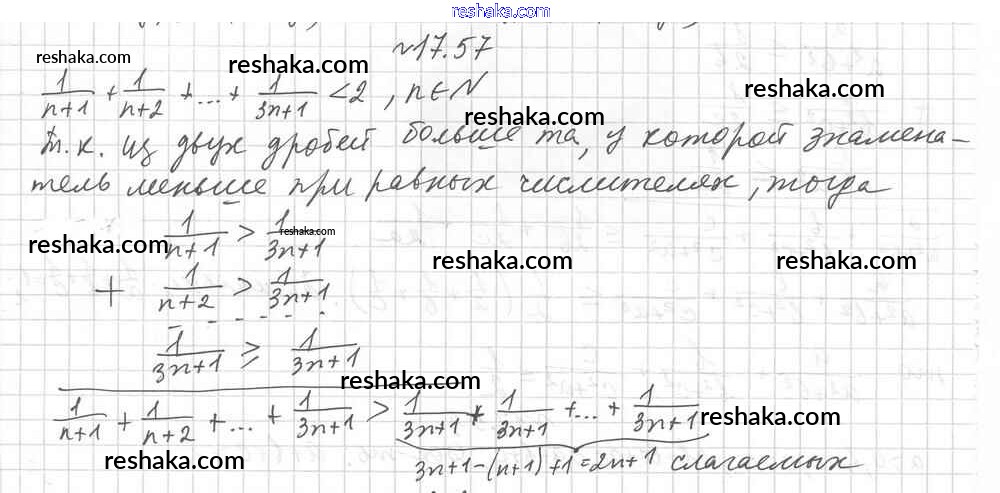 reshaka.com
№17.57
reshaka.com reshaka.com reshaka.com
1/(n+1) + 1/(n+2) + ... + 1/(3n+1) < 2 , n ∈ N
reshaka.com
т.к. из двух дробей больше та, у которой знамена-
тель меньше при равных числителях, тогда
1/(n+1) > 1/(3n+1)
reshaka.com reshaka.com reshaka.com reshaka.com
+ 1/(n+2) > 1/(3n+1)
- - - - - - -
1/(3n+1) ⩾ 1/(3n+1)
reshaka.com
1/(n+1) + 1/(n+2) + ... + 1/(3n+1) > 1/(3n+1) + 1/(3n+1) + ... + 1/(3n+1)
reshaka.com
reshaka.com
3n+1-(n+1)+1=2n+1 слагаемых